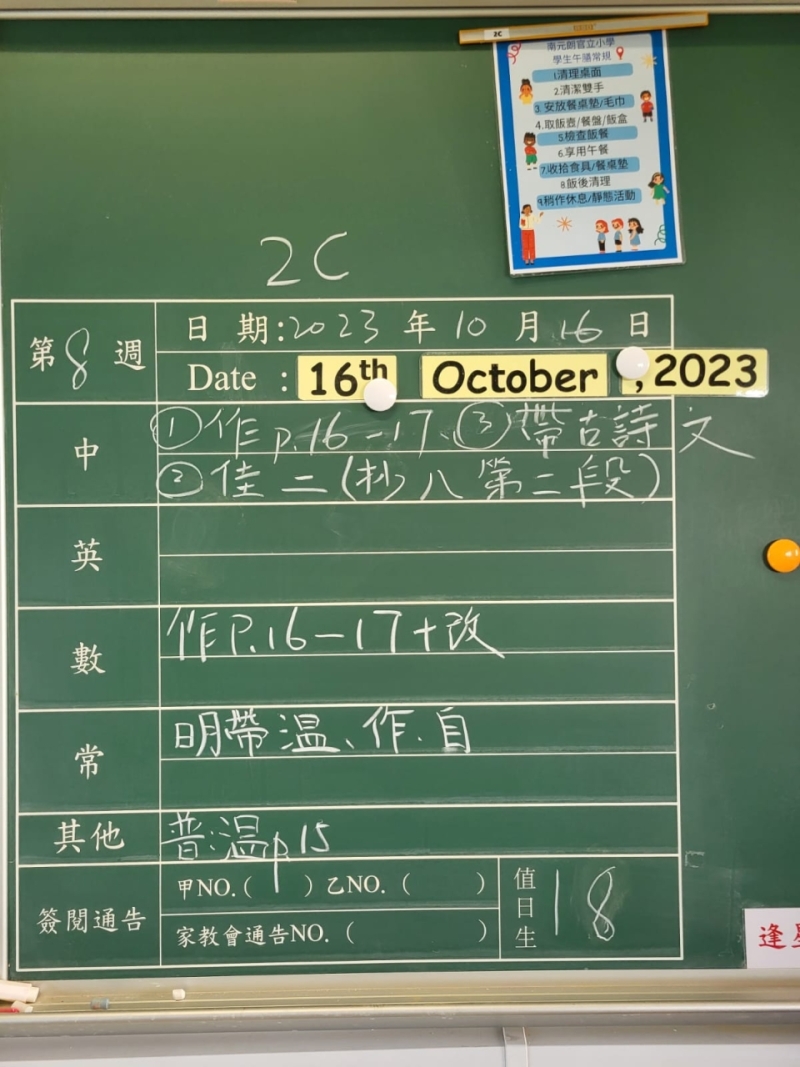 2C
南元朗官立小學
學生午膳常規
1.清理桌面
2.清潔雙手
3.安放餐桌墊/毛巾
4.取飯壺/餐盤/飯盒
5.檢查飯餐
6.享用午餐
7.收拾食具/餐桌墊
8.飯後清理
9.稍作休息/靜態活動
2C
第8週
日期:2023年10月16日
Date : 16th October , 2023
中
①作p.16-17、③帶古詩文
②佳二(抄八第二段)
英
數
作P.16-17+改
常
明帶溫、作、自
其他
普:溫p15
簽閱通告
甲NO.( ) 乙NO.( )
家教會通告NO.( )
值日生 18
逢星